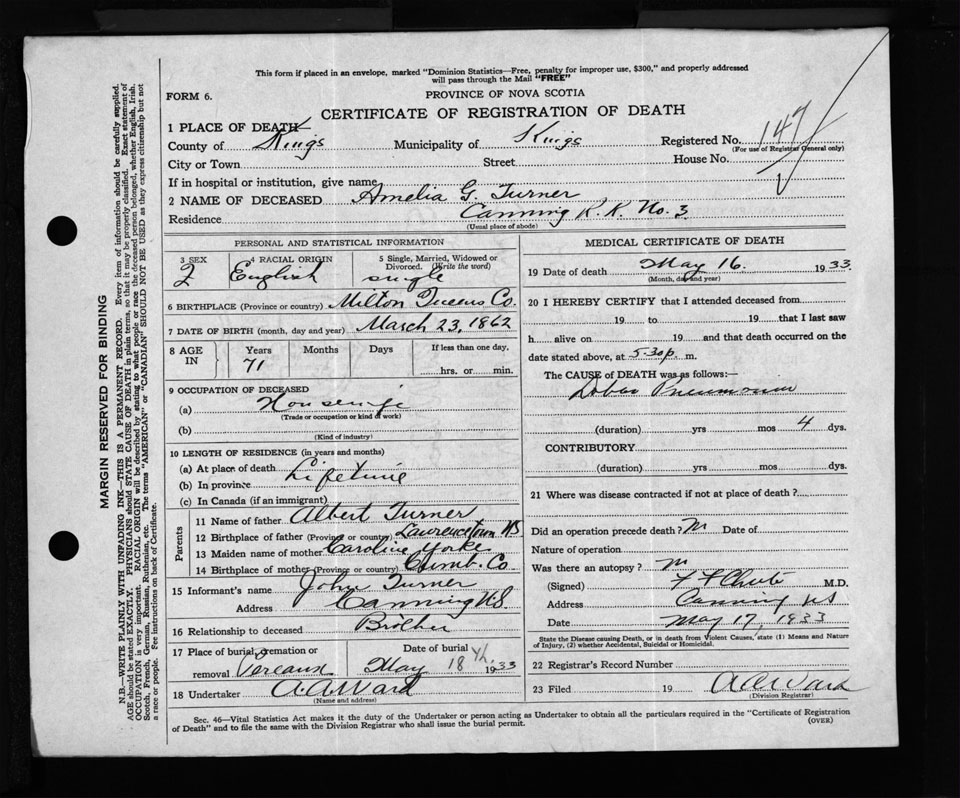 This form if placed in an envelope, marked "Dominion Statistics—Free, penalty for improper use, $300," and properly addressed
will pass through the Mail "FREE"
FORM 6.
PROVINCE OF NOVA SCOTIA
CERTIFICATE OF REGISTRATION OF DEATH
1 PLACE OF DEATH—
County of Kings Municipality of Kings Registered No. 147
(For use of Registrar General only)
City or Town Street House No.
If in hospital or institution, give name
2 NAME OF DECEASED Amelia G. Turner
Residence Canning R.R. No. 3
(Usual place of abode)
PERSONAL AND STATISTICAL INFORMATION
3 SEX 4 RACIAL ORIGIN 5 Single, Married, Widowed or Divorced. (Write the word)
English single
6 BIRTHPLACE (Province or country) Milton Queens Co.
7 DATE OF BIRTH (month, day and year) March 23, 1862
8 AGE IN Years Months Days If less than one day,
71 hrs. or min.
9 OCCUPATION OF DECEASED
(a)
(Trade or occupation or kind of work)
(b)
(Kind of industry)
10 LENGTH OF RESIDENCE (in years and months)
(a) At place of death
(b) In province Lifetime
(c) In Canada (if an immigrant)
Parents
11 Name of father Albert Turner
12 Birthplace of father (Province or country) Lawrencetown NS
13 Maiden name of mother Caroline Yorke
14 Birthplace of mother (Province or country) Cumb. Co
15 Informant's name John Turner
Address Canning N.S.
16 Relationship to deceased Brother
17 Place of burial, cremation or removal Date of burial
Pereaux May 18th, 1933
18 Undertaker A.A. Ward
(Name and address)
MEDICAL CERTIFICATE OF DEATH
19 Date of death May 16. 1933
(Month, day and year)
20 I HEREBY CERTIFY that I attended deceased from
19 to 19 that I last saw
h alive on 19 and that death occurred on the
date stated above, at 5.30 p. m.
The CAUSE of DEATH was as follows:—
Lobar Pneumonia
(duration) yrs mos 4 dys.
CONTRIBUTORY
(duration) yrs mos dys.
21 Where was disease contracted if not at place of death?
Did an operation precede death? Date of
Nature of operation
Was there an autopsy?
(Signed) M.D.
Address Canning NS
Date May 17, 1933
State the Disease causing Death, or in death from Violent Causes, state (1) Means and Nature of Injury, (2) whether Accidental, Suicidal or Homicidal.
22 Registrar's Record Number
23 Filed 19 A A Ward
(Division Registrar)
Sec. 46—Vital Statistics Act makes it the duty of the Undertaker or person acting as Undertaker to obtain all the particulars required in the "Certificate of Registration
of Death" and to file the same with the Division Registrar who shall issue the burial permit. (OVER)
MARGIN RESERVED FOR BINDING
N.B.—WRITE PLAINLY WITH UNFADING INK—THIS IS A PERMANENT RECORD. Every item of information should be carefully supplied.
AGE should be stated EXACTLY. PHYSICIANS should STATE CAUSE OF DEATH in plain terms, so that it may be properly classified. Exact statement of
OCCUPATION is very important. RACIAL ORIGIN will be described by stating to what people or race the deceased person belonged, whether English, Irish,
Scotch, French, German, Russian, Ruthenian, etc. The terms "AMERICAN" or "CANADIAN" SHOULD NOT BE USED as they express citizenship but not
a race or people. See instructions on back of Certificate.